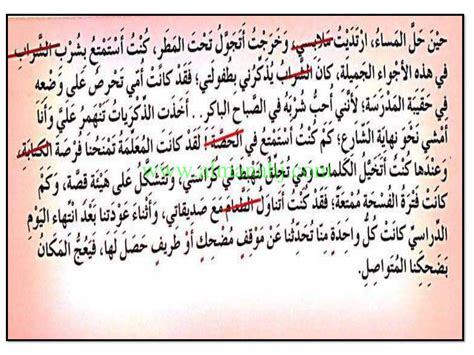 حِيْنَ حَلَّ المَساءُ، ارْتَدَيْتُ مَلابِسي، وَخَرَجْتُ أَتَجَوَّلُ تَحْتَ المَطَرِ، كُنْتُ أَسْتَمْتِعُ بِشُرْبِ الشَّرابِ
في هذِهِ الأَجْواءِ الجَميلَةِ، كانَ الشَّرابُ يُذَكِّرُني بِطُفولَتي؛ فَقَدْ كانَتْ أُمّي تَحْرِصُ عَلى وَضْعِهِ
في حَقيبَةِ المَدْرَسَةِ؛ لِأَنَّني أُحِبُّ شُرْبَهُ في الصَّباحِ الباكِرِ... أَخَذَتِ الذِّكْرَياتُ تَنْهَمِرُ عَلَيَّ وَأَنا
أَمْشي نَحْوَ نِهايَةِ الشّارِعِ؛ كَمْ كُنْتُ أَسْتَمْتِعُ في الحِصَّةِ! لَقَدْ كانَتِ المُعَلِّمَةُ تَمْنَحُنا فُرْصَةَ الكِتابَةِ،
وَعِنْدَها كُنْتُ أَتَخَيَّلُ الكَلِماتِ وَهِيَ تُحَلِّقُ لِتَهْبِطَ في كُرّاسَتي، وَتَتَشَكَّلُ عَلى هَيْئَةِ قِصَّةٍ، وَكَمْ
كانَتْ فَتْرَةُ الفُسْحَةِ مُمْتِعَةً؛ فَقَدْ كُنْتُ أَتَناوَلُ الطَّعامَ مَعَ صَديقاتي، وَأَثْناءَ عَوْدَتِنا بَعْدَ انْتِهاءِ اليَوْمِ
الدِّراسِيِّ كانَتْ كُلُّ واحِدَةٍ مِنّا تُحَدِّثُنا عَنْ مَوْقِفٍ مُضْحِكٍ أَوْ طَريفٍ حَصَلَ لَها، فَيَعُجُّ المَكانُ
بِضَحِكِنا المُتَواصِلِ.